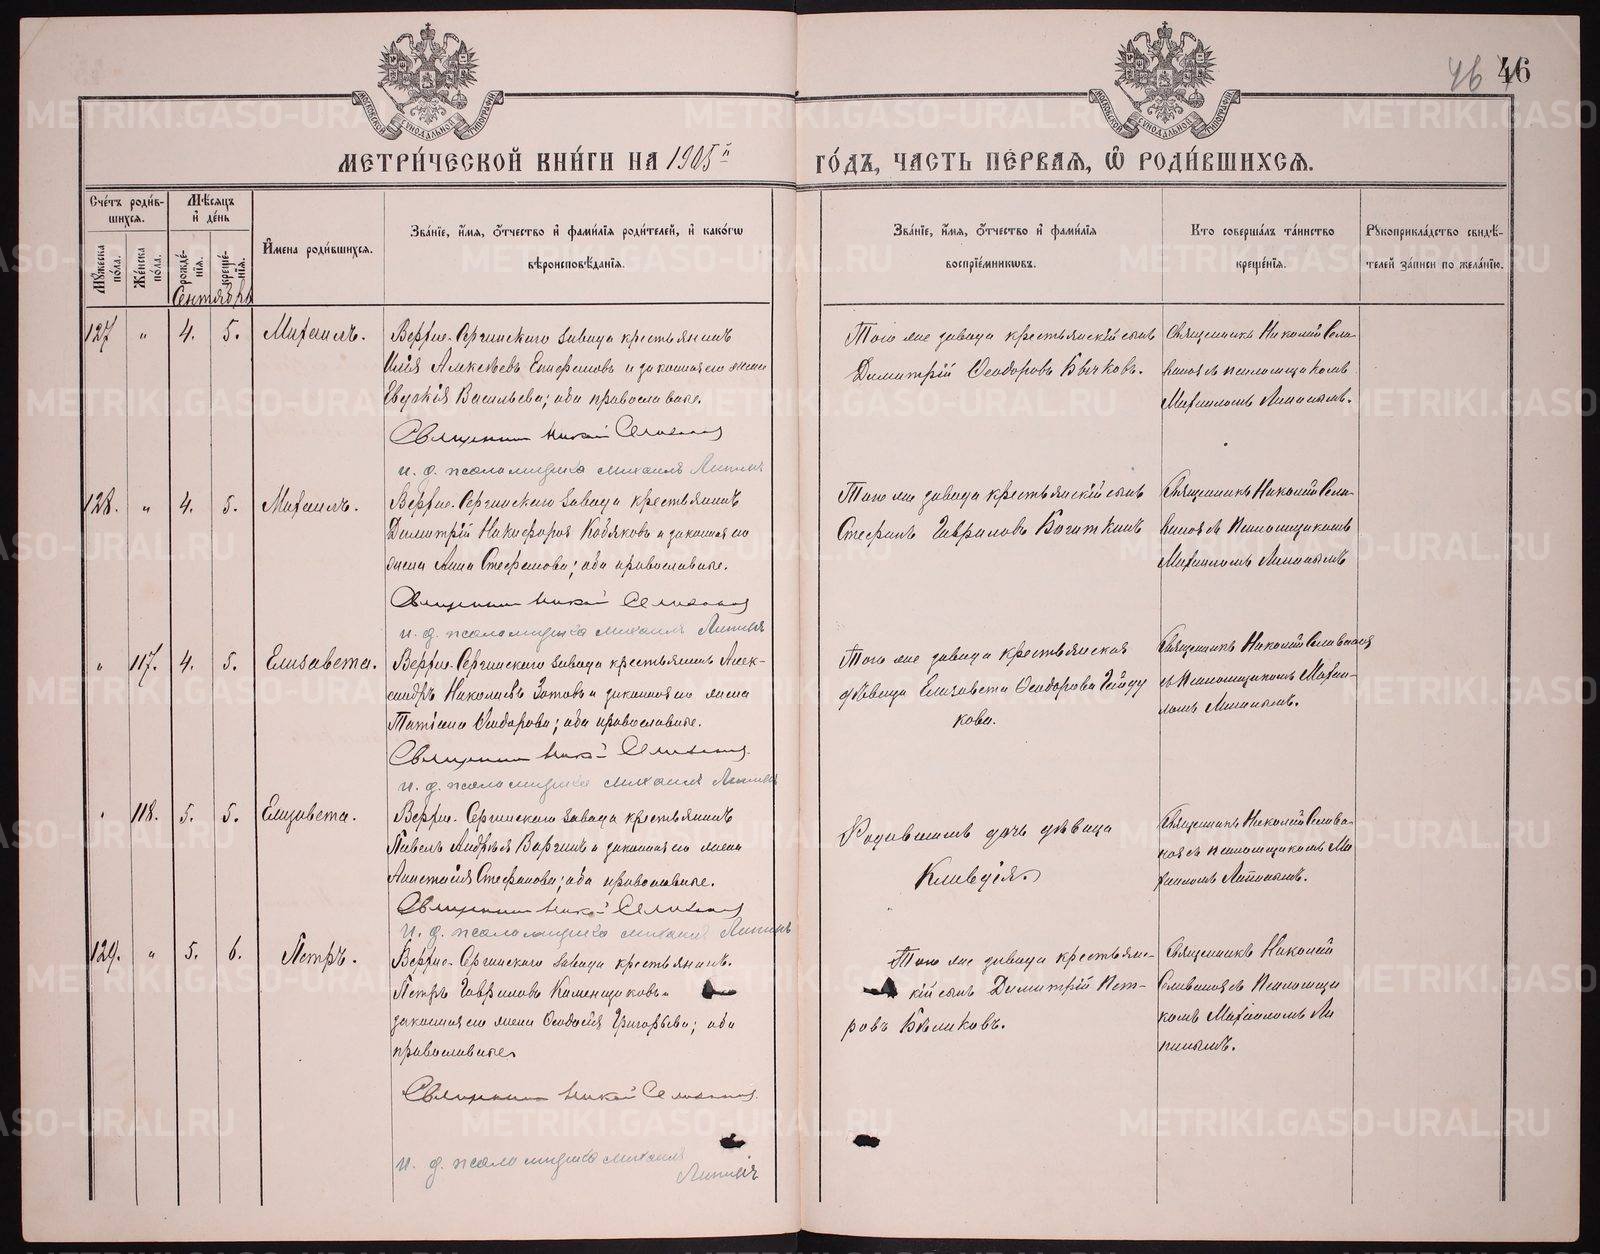 46 46
МЕТРИ́ЧЕСКОЙ КНИ́ГИ НА 1905й ГО́ДЪ, ЧАСТЬ ПЕ́РВАЯ, Ѡ҆ РОДИ́ВШИХСЯ.
Сче́тъ роди́в-
шихся.
Мꙋжеска по́ла.
Же́нска по́ла.
Мѣ́сяцъ
и҆ де́нь
рожде́-
нїя.
креще́-
нїя.
И҆мена роди́вшихся.
Зва́нїе, и҆́мя, ѻ҆́тчество и҆ фами́лїя роди́телей, и҆ како́гѡ
вѣроисповѣ́данїя.
Зва́нїе, и҆́мя, ѻ҆́тчество и҆ фами́лїя
воспрїе́мникѡвъ.
Кто соверша́лъ та́инство
креще́нїя.
Рꙋкоприкла́дство свидѣ́-
телей за́писи по жела́нїю.
Сентябрь
127 " 4. 5. Михаилъ.
Верхне-Сергинскаго завода крестьянинъ
Илія Алексѣевъ Епифановъ и законная его жена
Евдокія Васильева; оба православные.
Священникъ Николай Селивановъ
и. д. псаломщика Михаилъ Липинъ
Того же завода крестьянскій сынъ
Димитрій Ѳеодоровъ Бычковъ.
Священникъ Николай Сели-
вановъ съ псаломщикомъ
Михаиломъ Липинымъ.
128. " 4. 5. Михаилъ.
Верхне-Сергинскаго завода крестьянинъ
Димитрій Никифоровъ Кобяковъ и законная его
жена Анна Стефанова; оба православные.
Священникъ Николай Селивановъ
и. д. псаломщика Михаилъ Липинъ
Того же завода крестьянскій сынъ
Стефанъ Гавриловъ Богаткинъ
Священникъ Николай Сели-
вановъ съ Псаломщикомъ
Михаиломъ Липинымъ
" 117. 4. 5. Елизавета.
Верхне-Сергинскаго завода крестьянинъ Алек-
сандръ Николаевъ Зотовъ и законная его жена
Татіана Ѳеодорова; оба православные.
Священникъ Николай Селивановъ
и. д. псаломщика Михаилъ Липинъ
Того же завода крестьянская
дѣвица Елизавета Ѳеодорова
кова.
Священникъ Николай Селивановъ
съ Псаломщикомъ Михаи-
ломъ Липинымъ.
" 118. 5. 5. Елизавета.
Верхне-Сергинскаго завода крестьянинъ
Павелъ Андреевъ и законная его жена
Анастасія Стефанова; оба православные.
Священникъ Николай Селивановъ
и. д. псаломщика Михаилъ Липинъ
дочь дѣвица
Клавдія.
Священникъ Николай Селива-
новъ съ псаломщикомъ Ми
хаиломъ Липинымъ.
129. " 5. 6. Петръ.
Верхне-Сергинскаго завода крестьянинъ
Петръ Гавриловъ Каменщиковъ и
законная его жена Ѳеодосія Григорьева; оба
православные
Священникъ Николай Селивановъ
и. д. псаломщика Михаилъ
Липинъ
Того же завода крестьянс-
кій сынъ Димитрій Пет-
ровъ Бѣликовъ.
Священникъ Николай
Селивановъ съ Псаломщи
комъ Михаиломъ Ли
пинымъ.